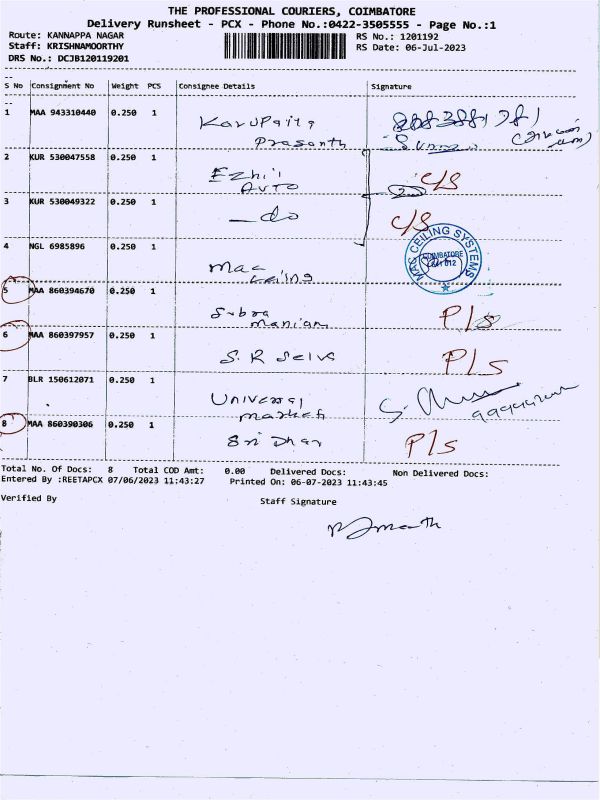 THE PROFESSIONAL COURIERS, COIMBATORE
Delivery Runsheet - PCX - Phone No.:0422-3505555 - Page No.:1
Route: KANNAPPA NAGAR RS No.: 1201192
Staff: KRISHNAMOORTHY RS Date: 06-Jul-2023
DRS No.: DCJB120119201
S No Consignment No Weight PCS Consignee Details Signature
1 MAA 943310440 0.250 1
Prasanth
2 KUR 530047558 0.250 1 Ezhil C/S
Auto
3 KUR 530049322 0.250 1 -do C/S
4 NGL 6985896 0.250 1 Maa
MAC CEILING SYSTEMS
COIMBATORE
5 MAA 860394670 0.250 1 Subra P/S
manian
6 MAA 860397957 0.250 1 S.R Selva P/S
7 BLR 150612071 0.250 1 Universal
market
8 MAA 860390306 0.250 1 Sri Dhar P/S
Total No. Of Docs: 8 Total COD Amt: 0.00 Delivered Docs: Non Delivered Docs:
Entered By :REETAPCX 07/06/2023 11:43:27 Printed On: 06-07-2023 11:43:45
Verified By Staff Signature